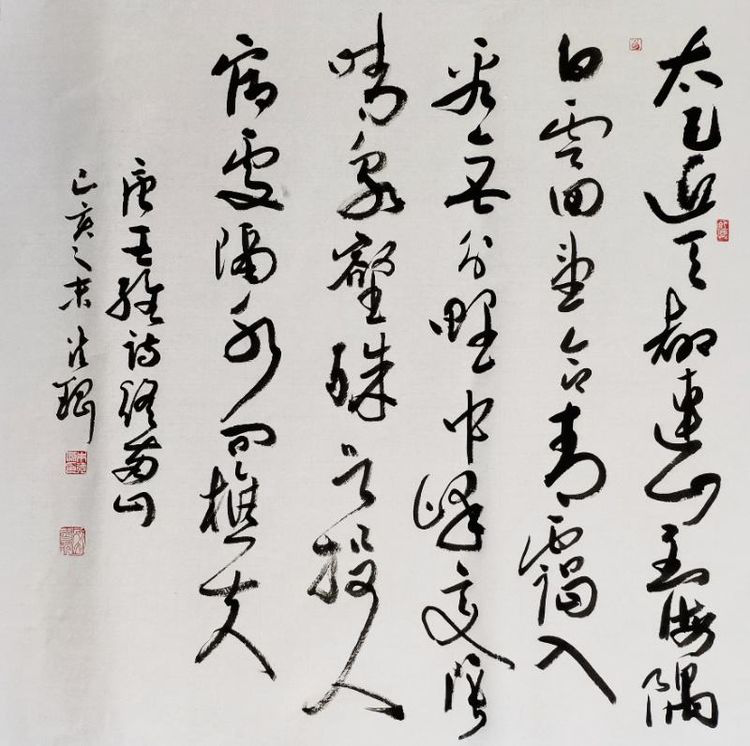 太乙近天都連山到海隅
白雲回望合青靄入
看無分野中峰變陰
晴眾壑殊欲投人
宿處隔水問樵夫
唐王維詩終南山
己亥之末